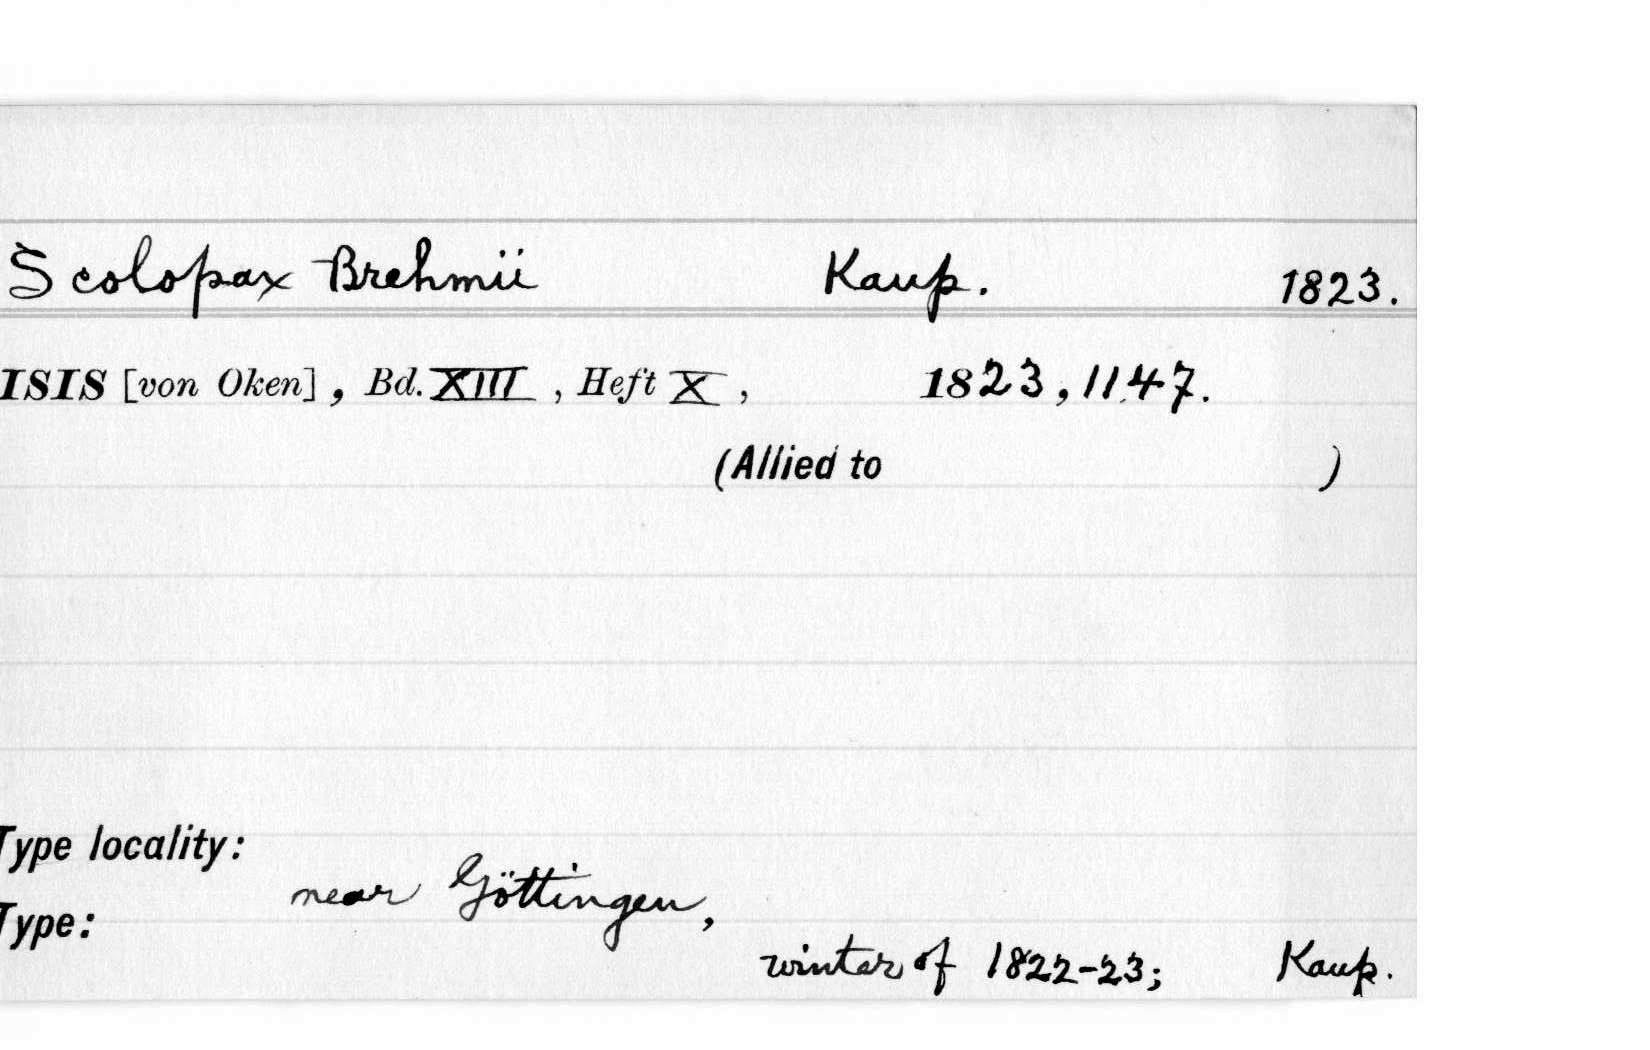 Scolopax Brehmii Kaup. 1823.
ISIS [von Oken], Bd. XIII, Heft X, 1823, 1147.
(Allied to )
Type locality:
near Göttingen,
Type:
winter of 1822-23; Kaup.